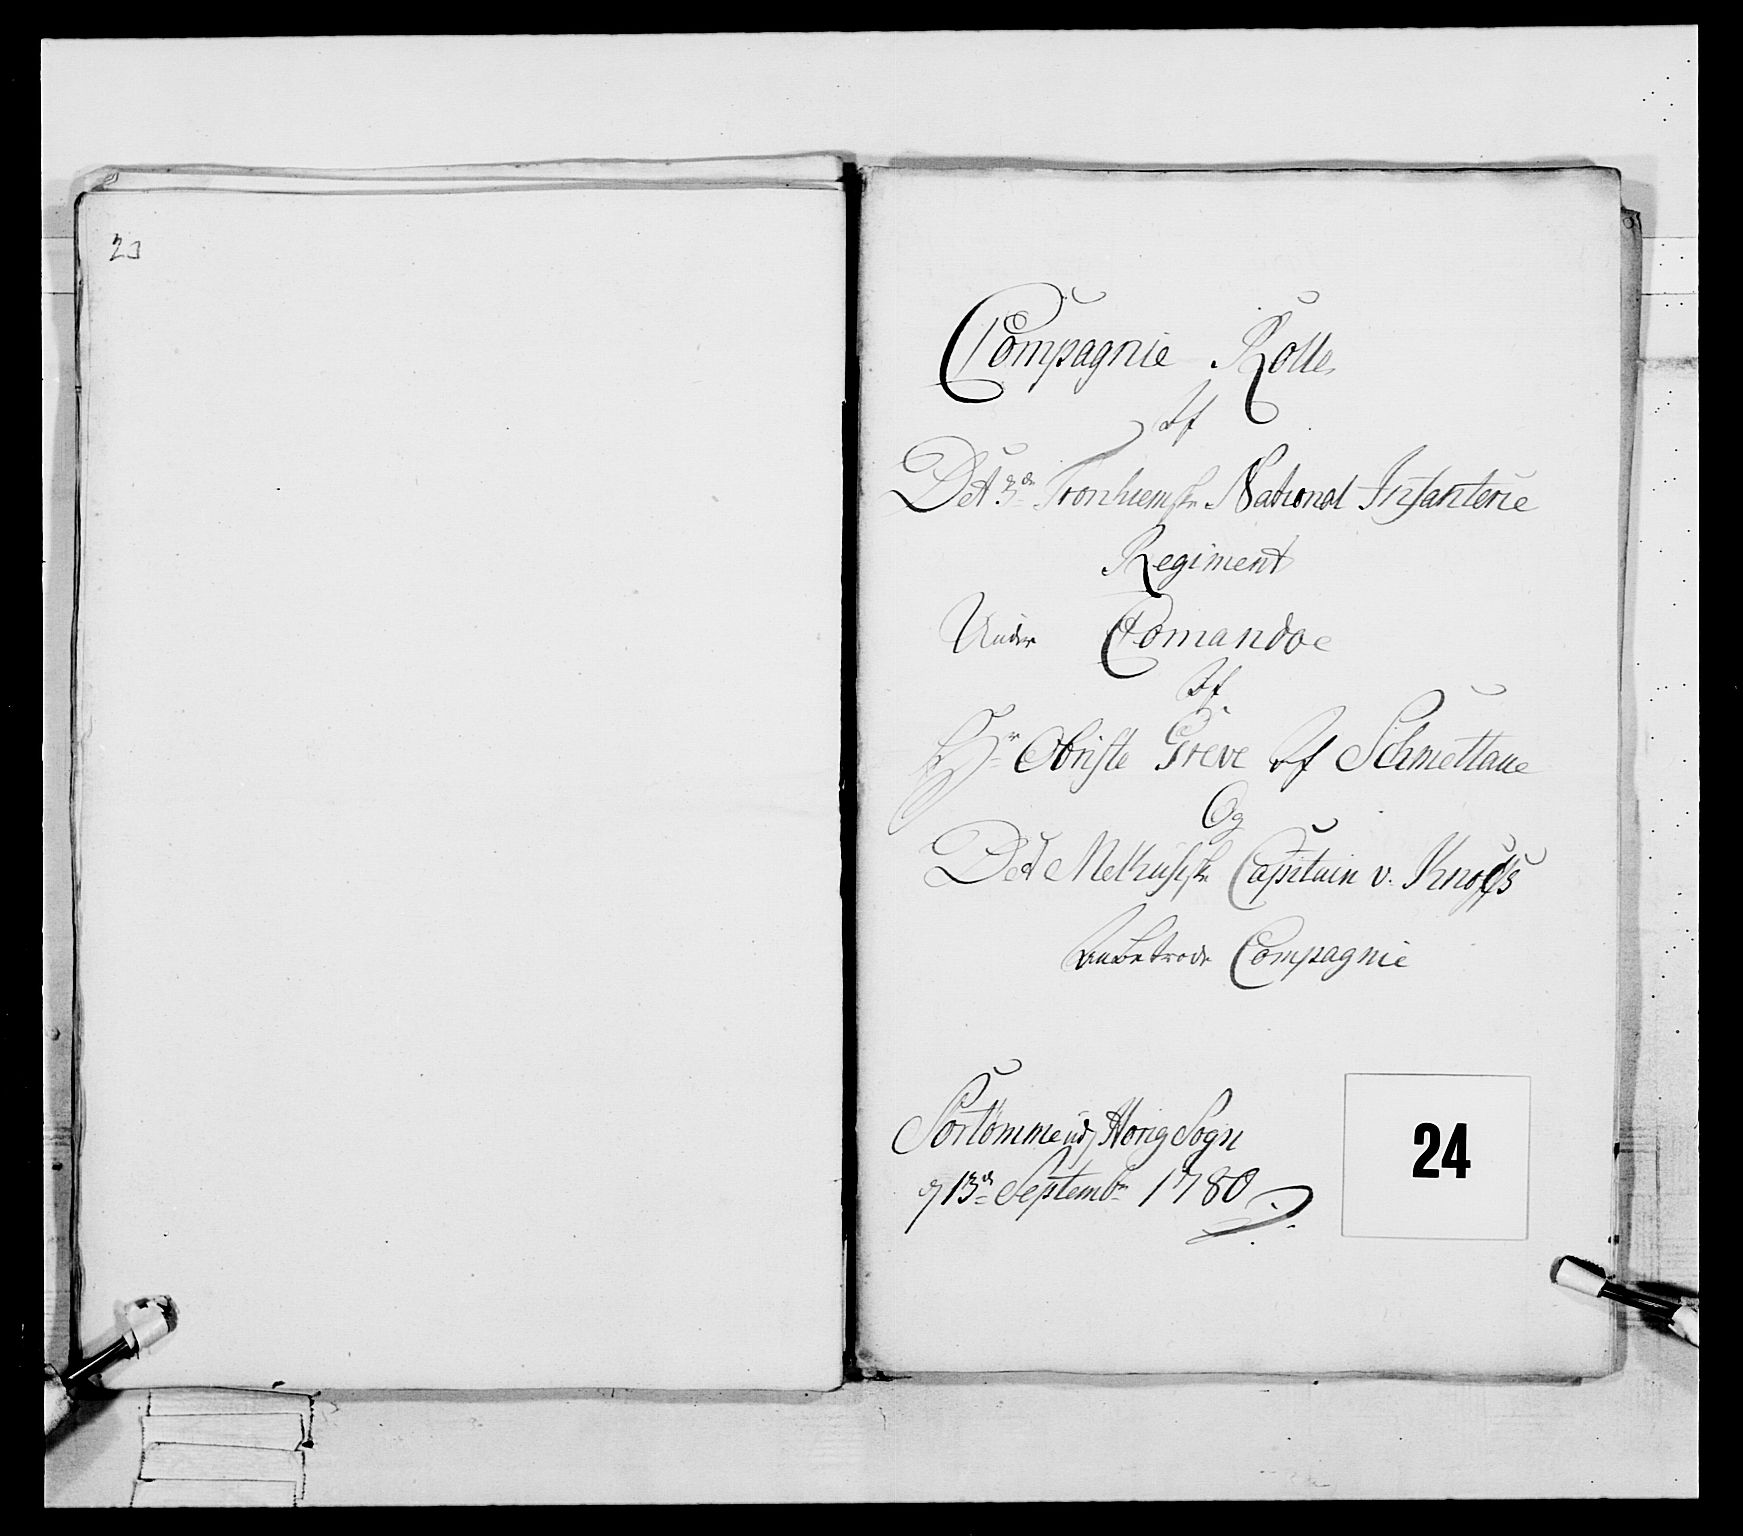 23
Compagnie Rolle
Af
Det 3de Tronhiemske National Infanterie
Regiment
Under Comandoe
Af
Hr Obriste Greve Af Schmettaue
Og
Det Melhusiske Capitain v. Knoff's
Anbetrode Compagnie
Horig Sogn
d 13de Septembr 1780
24